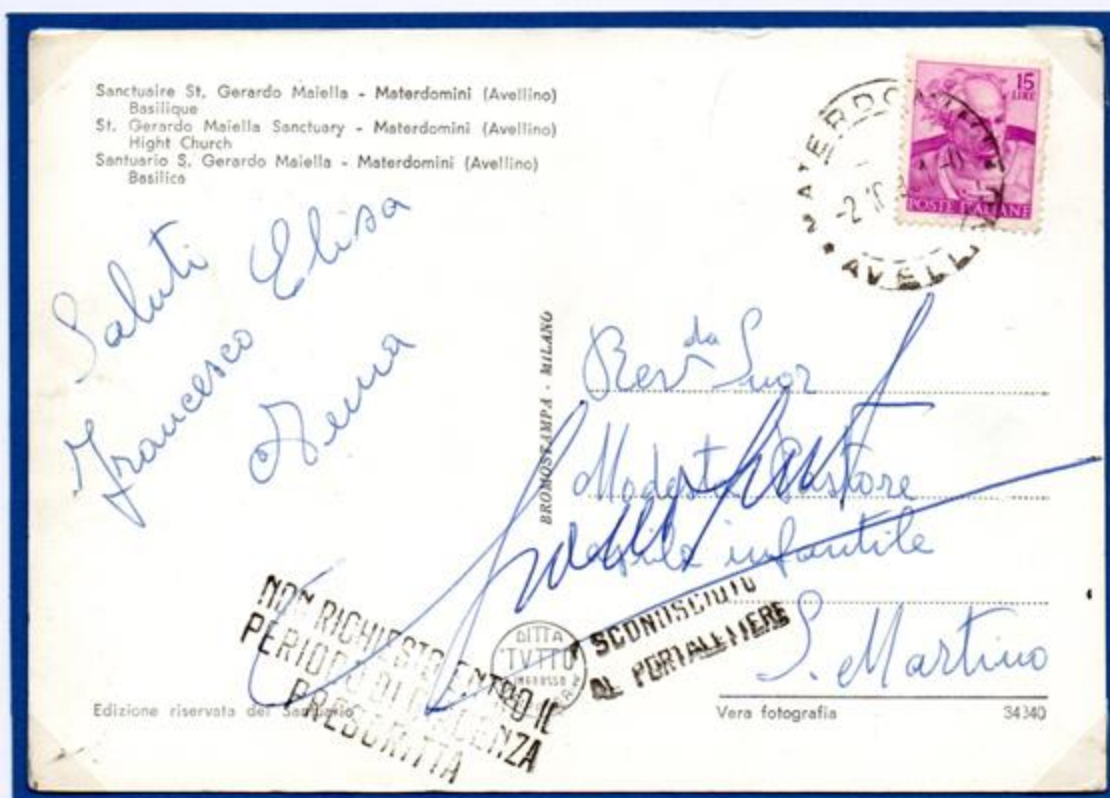 Sanctuaire St. Gerardo Maiella - Materdomini (Avellino)
Basilique
St. Gerardo Maiella Sanctuary - Materdomini (Avellino)
Hight Church
Santuario S. Gerardo Maiella - Materdomini (Avellino)
Basilica
15
LIRE
POSTE ITALIANE
MATERDOMINI
-2.10
AVELLINO
Saluti
Francesco Elisa
BROMOSTAMPA - MILANO
Rev.da Suor
Modesta Pastore
Asilo infantile
S. Martino
NON RICHIESTO ENTRO IL
PERIODO DI GIACENZA
PRESCRITTA
DITTA
TUTTO
INGROSSO
SCONOSCIUTO
AL PORTALETTERE
Edizione riservata del Santuario
Vera fotografia 34340